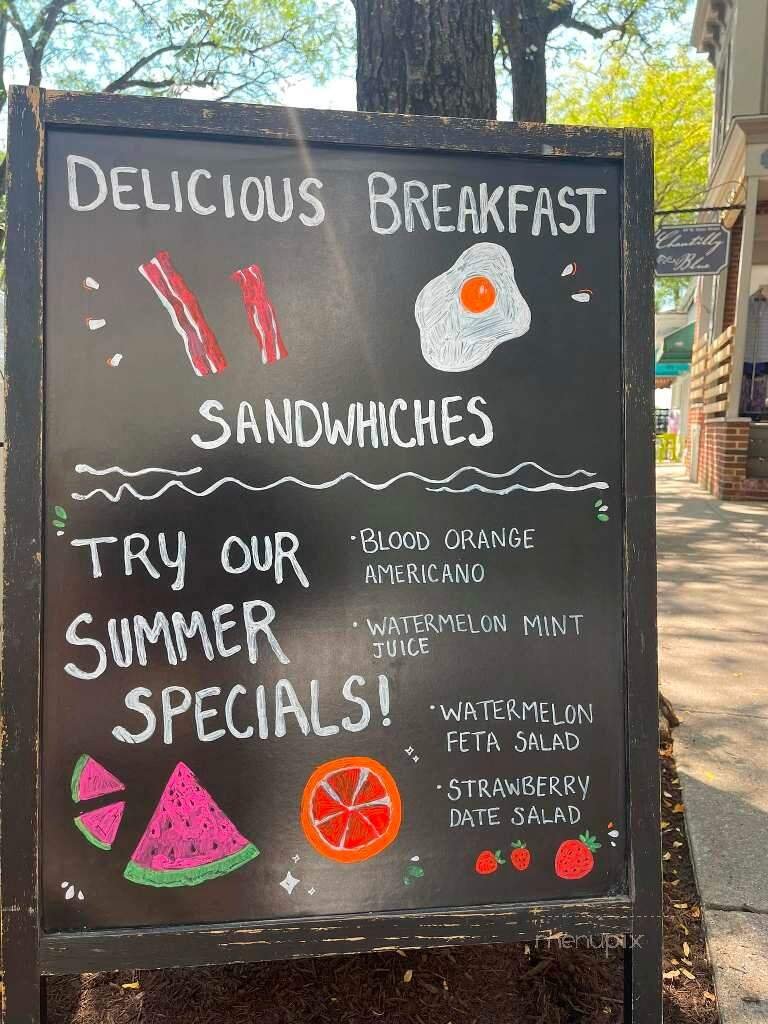 DELICIOUS BREAKFAST
SANDWHICHES
TRY OUR
SUMMER
SPECIALS!
· BLOOD ORANGE
AMERICANO
· WATERMELON MINT
JUICE
· WATERMELON
FETA SALAD
· STRAWBERRY
DATE SALAD
Chantilly
Blue
menupix